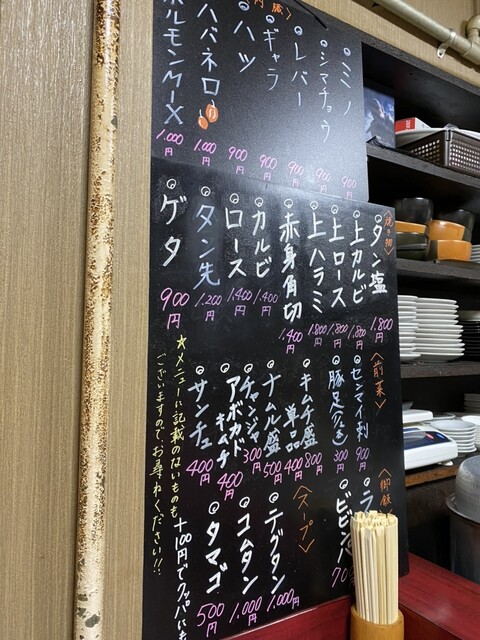 ミノ 900円
シマチョウ 900円
レバー 900円
ギャラ 900円
ハツ 900円
ハバネロ 1,000円
ホルモンMIX 1,000円
〈焼き物〉
タン塩 1,800円
上カルビ 1,800円
上ロース 1,800円
上ハラミ 1,800円
赤身角切 1,400円
カルビ 1,400円
ロース 1,400円
タン先 1,200円
ゲタ 900円
〈前菜〉
センマイ刺 900円
豚足 300円
キムチ盛 800円
単品 400円
ナムル盛 500円
チャンジャ 300円
アボカド
キムチ 400円
サンチュ 400円
〈御飯
ラ
ビビンバ 70
〈スープ〉
テグタン 1,000円
コムタン 1,000円
タマゴ 500円
+100円でクッパにも
★メニューに記載のないものも
ございますので、お尋ねください!!